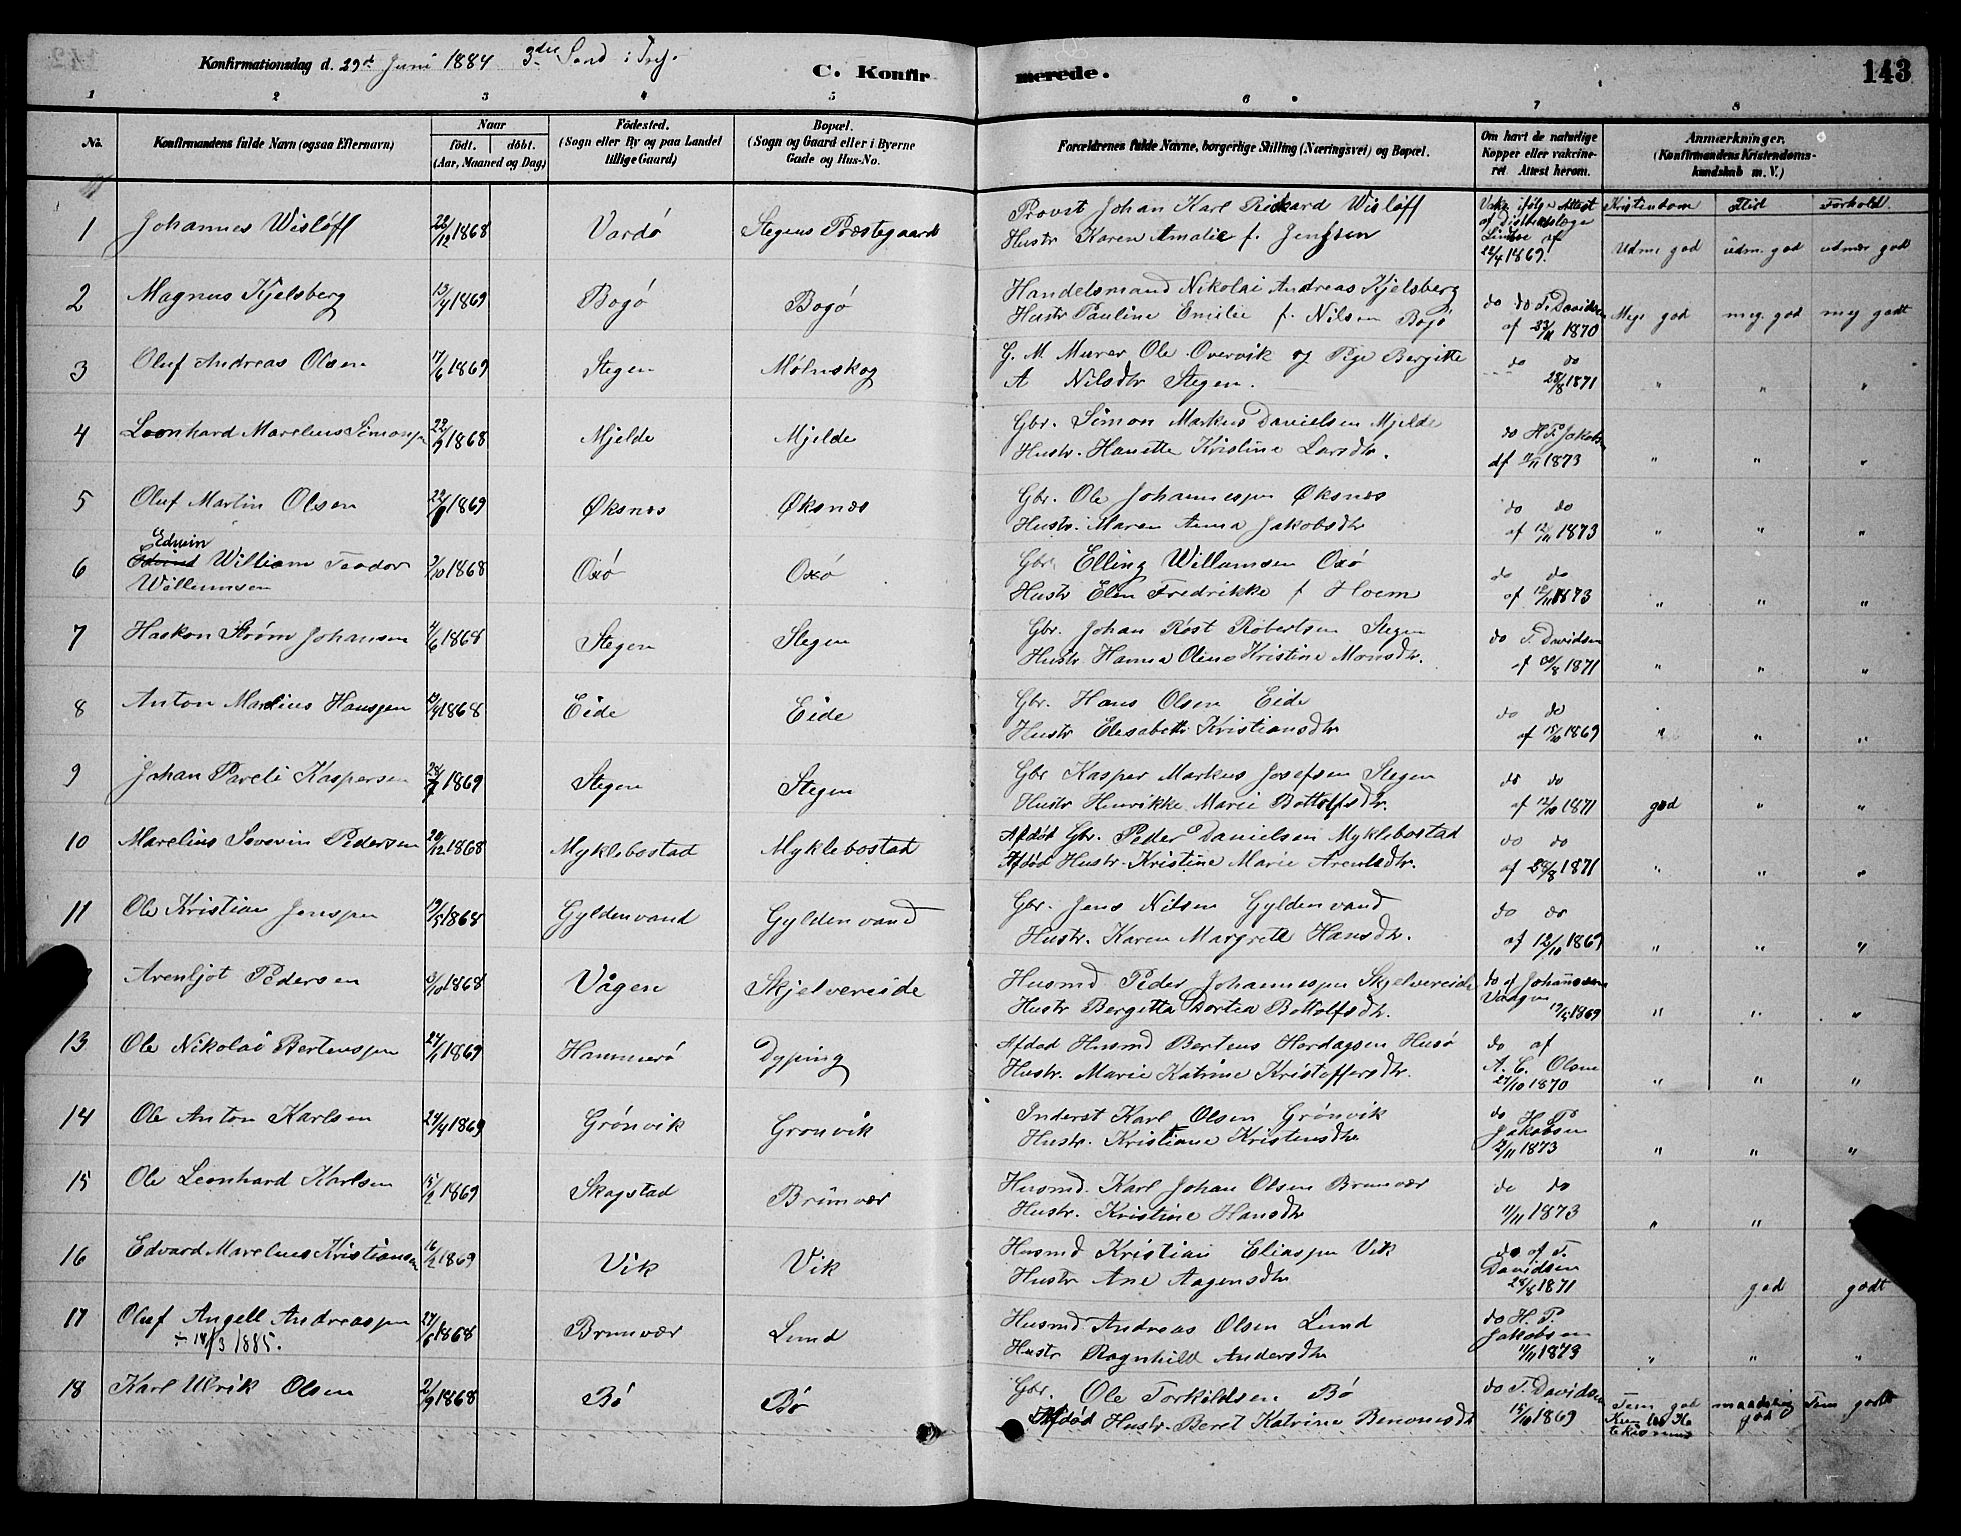 Konfirmationsdag d. 29d Juni 1884 3die Sönd i Tref.
C. Konfirmerede.
143
1 2 3 4 5 6 7 8
No.
Konfirmandens fulde Navn (ogsaa Efternavn)
Naar
født. døbt.
(Aar, Maaned og Dag)
Fødested.
(Sogn eller By og paa Landet tillige Gaard)
Bopæl.
(Sogn og Gaard eller i Byerne Gade og Hus-No.
Forældrenes fulde Navne, borgerlige Stilling (Næringsvei) og Bopæl.
Om havt de naturlige Kopper eller vakcineret Attest herom.
Anmærkninger.
(Konfirmandens Kristendomskundskab m. V.)
Kristendom Flid Forhold
1 Johannes Wisløff 22/12 1868 Vardö Stegens Præstegaard Provst Johan Karl Rickard Wisløff
Hustr Karen Amalie f. Jenssen
Vakc. ifølge Attest af Distriktslæge Lindboe af 22/4 1869. Udm god üdm. god udmær godt
2 Magnus Kjelsberg 13/4 1869 Bogö Bogö Handelsmand Nikolai Andreas Kjelsberg
Hustr Pauline Emilie f. Nilsen Bogö
do do T. Davidsen af 23/11 1870 Mege god meg. god meg godt
3 Oluf Andreas Olsen 17/6 1869 Stegen Mölnskog G. M Murer Ole Overvik og Pige Bergitte
A Nilsdtr Stegen.
do do 28/8 1871 " " "
4 Leonhard Marelius Simonsen 22/9 1868 Mjelde Mjelde Gbr. Simon Markus Danielsen Mjelde
Hustr. Hanette Kristine Larsdtr.
do H. P. Jakobsen af 11/11 1873 " " "
5 Oluf Martin Olsen 1869 Øksnes Øksnes Gbr. Ole Johannessen Øksnes
Hustr. Maren Anna Jakobsdtr
do do af 12/11 1873 " " "
6 Edvin William Teodor
Willumsen 2/10 1868 Oxö Oxö Gbr. Elling Willumsen Oxö
Hustr Elen Fredrikke f Hoem
do do af 12/11 1873 " " "
7 Haakon Strøm Johansen 4/6 1868 Stegen Stegen Gbr. Johan Röst Robertsen Stegen
Hustr. Hanna Oline Kristine Monsdtr.
do T. Davidsen af 30/8 1871 " " "
8 Anton Marelius Hanssen 1868 Eide Eide Gbr. Hans Olsen Eide
Hustr Elesabeth Kristiansdtr
do do af 15/10 1869 " " "
9 Johan Pareli Kaspersen 1869 Stegen Stegen Gbr Kasper Markus Josefsen Stegen
Hustr Henrikke Marie Bottolfsdtr.
do do af 12/10 1871 god " "
10 Marelius Severin Pedersen 20/12 1868 Myklebostad Myklebostad Afdöd Gbr. Peder Danielsen Myklebostad
Afdöd Hustr. Kristine Marie Arentsdtr.
do do af 28/8 1871 " " "
11 Ole Kristian Jenssen 19/5 1868 Gyldenvand Gyldenvand Gbr. Jens Nilsen Gyldenvand
Hustr. Karen Margrete Hansdtr.
do do af 12/10 1869 " " "
Arenljot Pedersen 3/10 1868 Vågen Skjelvereide Husmd Peder Johannessen Skjelvereide
Hustr Bergitta Dortea Bottolfsdtr.
do af Johanssen Vaagen 1869 " " "
13 Ole Nikolai Bertenssen 1869 Hammerö Dyping Afdöd Husmd Bertens Hordagsen Husö
Hustr. Marie Katrine Kristoffersdtr.
do af A. C. Olsen 27/10 1870 " " "
14 Ole Anton Karlsen 24/4 1869 Grönvik Grönvik Inderst Karl Olsen Grönvik
Hustr. Kristiane Kristensdtr
do H. P. Jakobsen 2/11 1873 " " "
15 Ole Leonhard Karlsen 15/2 1869 Skagstad Brünvær Husmd. Karl Johan Olsen Brunvær
Hustr. Kristine Hansdtr
do do 11/11 1873 " "
16 Edvard Marelius Kristiansen 16/2 1869 Vik Vik Husmd Kristian Eliassen Vik
Hustr Ane Aagensdtr
do af T. Davidsen 28/8 1871 god godt
17 Oluf Angell Andreassen
÷ 18/3 1885. 27/6 1868 Brunvær Lund Husmd. Andreas Olsen Lund
Hustr Ragnhild Andersdtr
do H. P. Jakobsen 11/11 1873 " " "
18 Karl Ulrik Olsen 2/9 1868 Bö Bö Gbr. Ole Torkildsen Bö
Afdöd Hustr. Beret Katrine Benonisdtr
do T. Davidsen 15/10 1869 Tem god maadelig god Tem godt